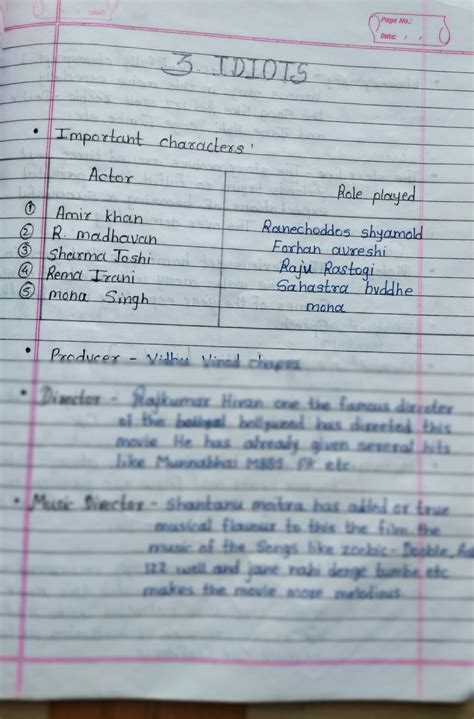 Page No.:
Date: , ,
3 IDIOTS
• Important characters'
Actor Role played
① Amir khan Ranechoddos shyamold
② R. madhavan Farhan avreshi
③ Sharma Joshi Raju Rastogi
④ Rema Irani Sahastra bvddhe
⑤ mona Singh mona
• Producer - Vidhu Vinod
• Director - Rajkumar Hiran one the famous
of the hollywood has directed this
movie He has already given several hits
like Munnabhai MBBS PK etc.
• Music Director - Shantanu moitra has added or true
musical flavour to this the film the
music of the Songs like zoobie - Doobie,
122 well and jane nahi denge tumhe etc
makes the movie more melodious